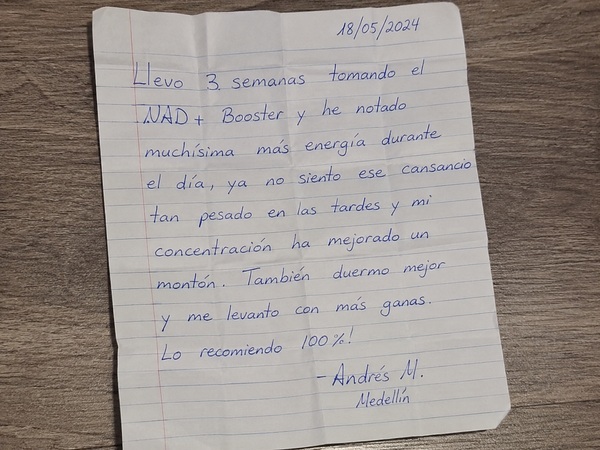 18/05/2024
Llevo 3 semanas tomando el
NAD+ Booster y he notado
muchísima más energía durante
el día, ya no siento ese cansancio
tan pesado en las tardes y mi
concentración ha mejorado un
montón. También duermo mejor
y me levanto con más ganas.
Lo recomiendo 100%!
- Andrés M.
Medellín